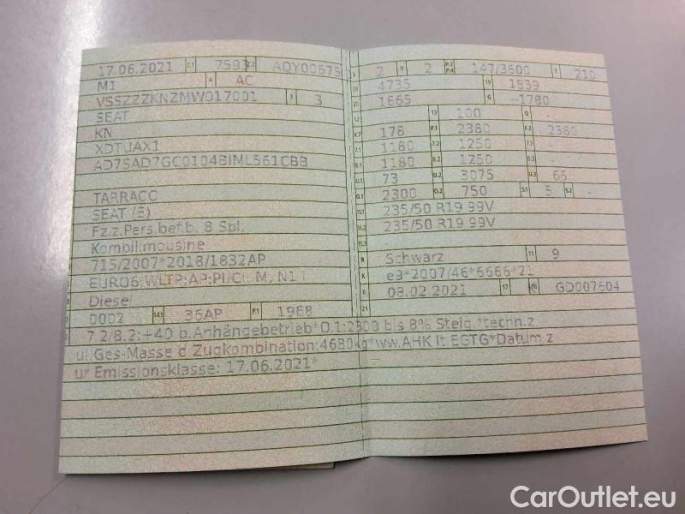 17.06.2021 7593 AQY00675
M1 AC
VSSZZZKNZMW017001 3
SEAT
KN
XDTJAX1
AD7SAD7GC0104BIML561CBB
TARRACO
SEAT (E)
Fz.z.Pers.bef.b. 8 Spl.
Kombilimousine
715/2007*2018/1832AP
EURO6;WLTP;AP;PI/CI; M, N1 I
Diesel
0002 36AP 1968
2 2 147/3600 210
4735 1839
1665 -1780
100
178 2380 2380
1180 1250 -
1180 1250 -
73 3075 66
2300 750 5 -
235/50 R19 99V
235/50 R19 99V
Schwarz 9
e9*2007/46*6666*21
08.02.2021 GD007604
7.2/8.2:+40 b.Anhängebetrieb*O.1:2300 bis 8% Steig.*techn.z
ul.Ges-Masse d.Zugkombination:4680kg*ww.AHK lt.EGTG*Datum z
ur Emissionsklasse: 17.06.2021*
CarOutlet.eu